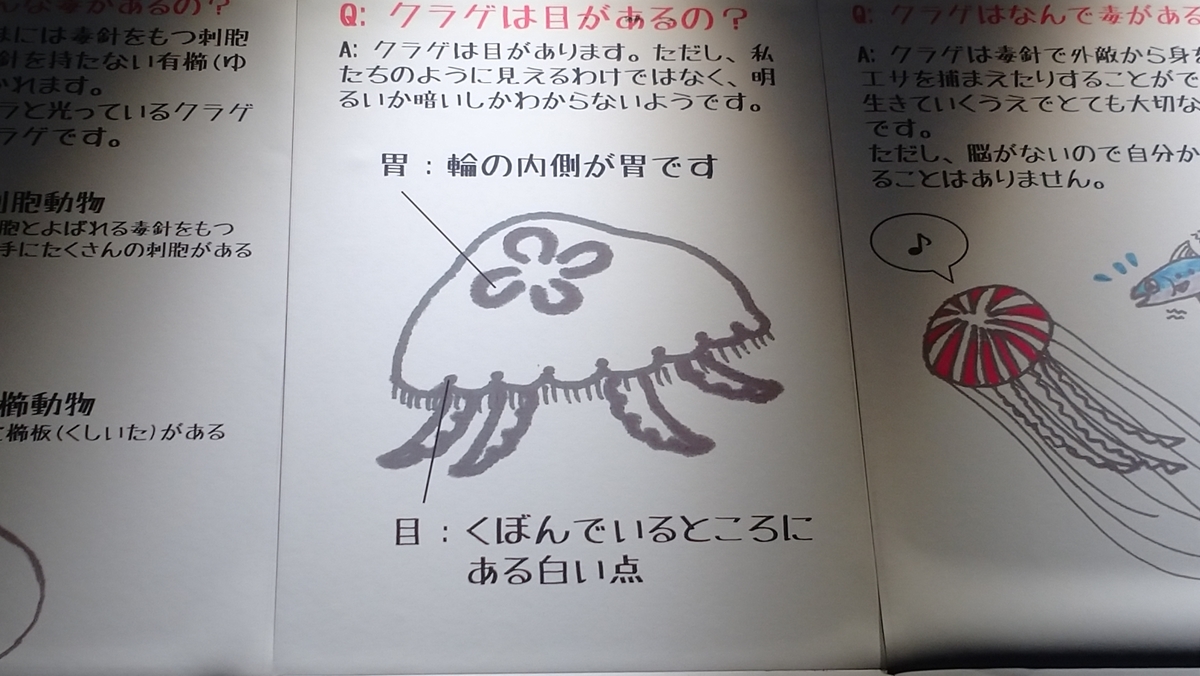 な毒があるの？
には毒針をもつ刺胞
針を持たない有櫛(ゆ
かれます。
ラと光っているクラゲ
ラゲです。
刺胞動物
胞とよばれる毒針をもつ
手にたくさんの刺胞がある
櫛動物
櫛板(くしいた)がある
Q: クラゲは目があるの？
A: クラゲは目があります。ただし、私
たちのように見えるわけではなく、明
るいか暗いしかわからないようです。
胃：輪の内側が胃です
目：くぼんでいるところに
ある白い点
Q: クラゲはなんで毒がある
A: クラゲは毒針で外敵から身を
エサを捕まえたりすることがで
生きていくうえでとても大切な
です。
ただし、脳がないので自分か
ることはありません。
♪